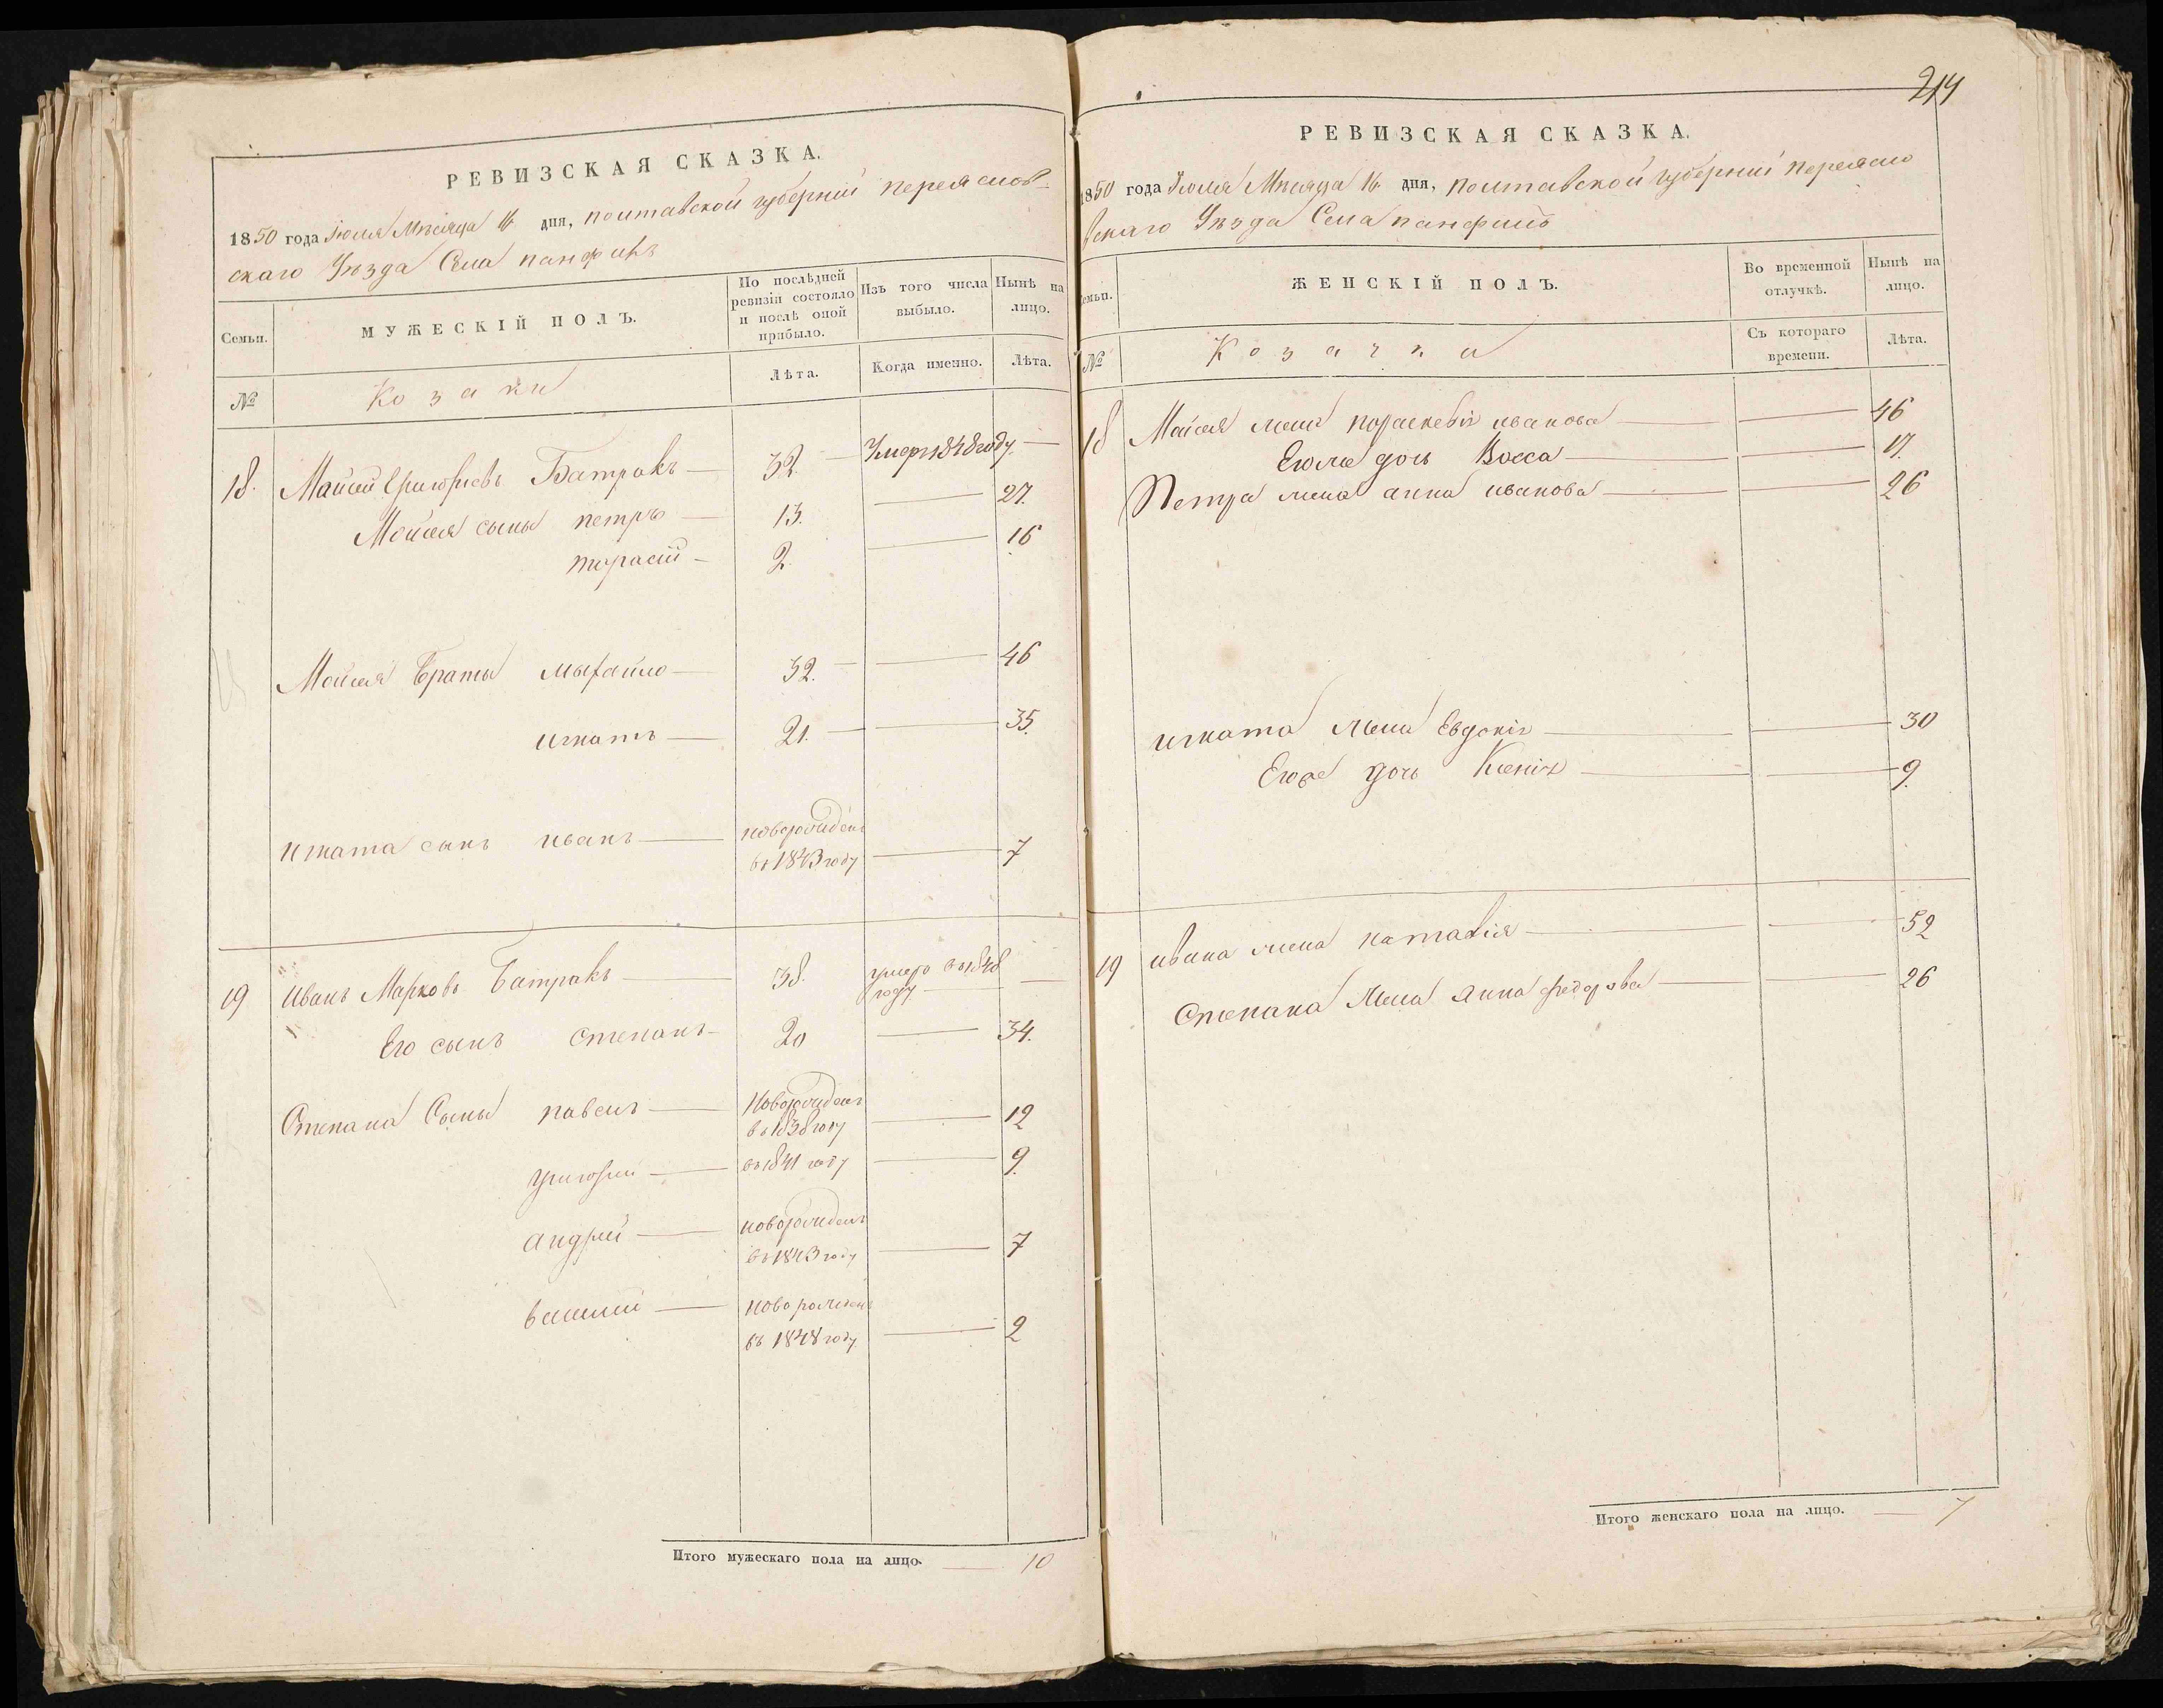 РЕВИЗСКАЯ СКАЗКА.
1850 года Июля Мѣсяца 16 дня, полтавской губерніи переяслов-
скаго Уѣзда Села панфилъ
Семьи.
МУЖЕСКІЙ ПОЛЪ.
По послѣдней
ревизіи состояло
и послѣ оной
прибыло.
Изъ того числа
выбыло.
Нынѣ на
лицо.
№
Козаки
Лѣта.
Когда именно.
Лѣта.
18. Мойсей Григорьевъ Батракъ 32. Умеръ 1848 году.
Мойсея сыны петръ 13. 27.
тарасій 2. 16
Мойсея Браты Мыхайло 32. 46
игнатъ 21. 35.
игната сынъ иванъ новорожденъ
въ 1843 году 7
19 иванъ Марковъ Батракъ 38. умеръ въ 1848
году
Его сынъ степанъ 20 34.
Степана Сыны павелъ Новорожденъ
въ 1838 году 12
григорій въ 1841 году 9.
андрій новорожденъ
въ 1843 году 7
василій новорожденъ
въ 1848 году 2
Итого мужескаго пола на лицо. 10
214
РЕВИЗСКАЯ СКАЗКА.
1850 года Июля Мѣсяца 16 дня, полтавской губерніи переясло
вскаго Уѣзда Села панфилъ
Семьи.
ЖЕНСКІЙ ПОЛЪ.
Во временной
отлучкѣ.
Нынѣ на
лицо.
№
Козачки
Съ котораго
времени.
Лѣта.
18 Мойсея жена параскевія иванова 46
Его дочь 17.
Петра жена анна иванова 26
игната жена Евдокія 30
Его дочь Ксенія 9.
19 ивана жена наталія 52
Степана жена анна федорова 26
Итого женскаго пола на лицо. 7